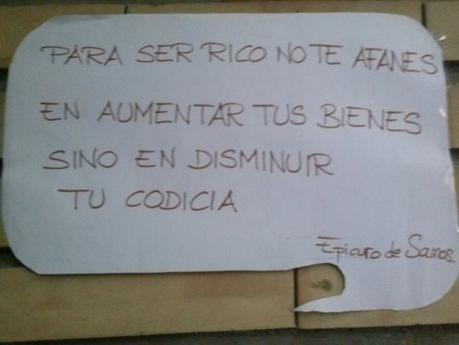 PARA SER RICO NO TE AFANES
EN AUMENTAR TUS BIENES
SINO EN DISMINUIR
TU CODICIA
Epicuro de Samos.